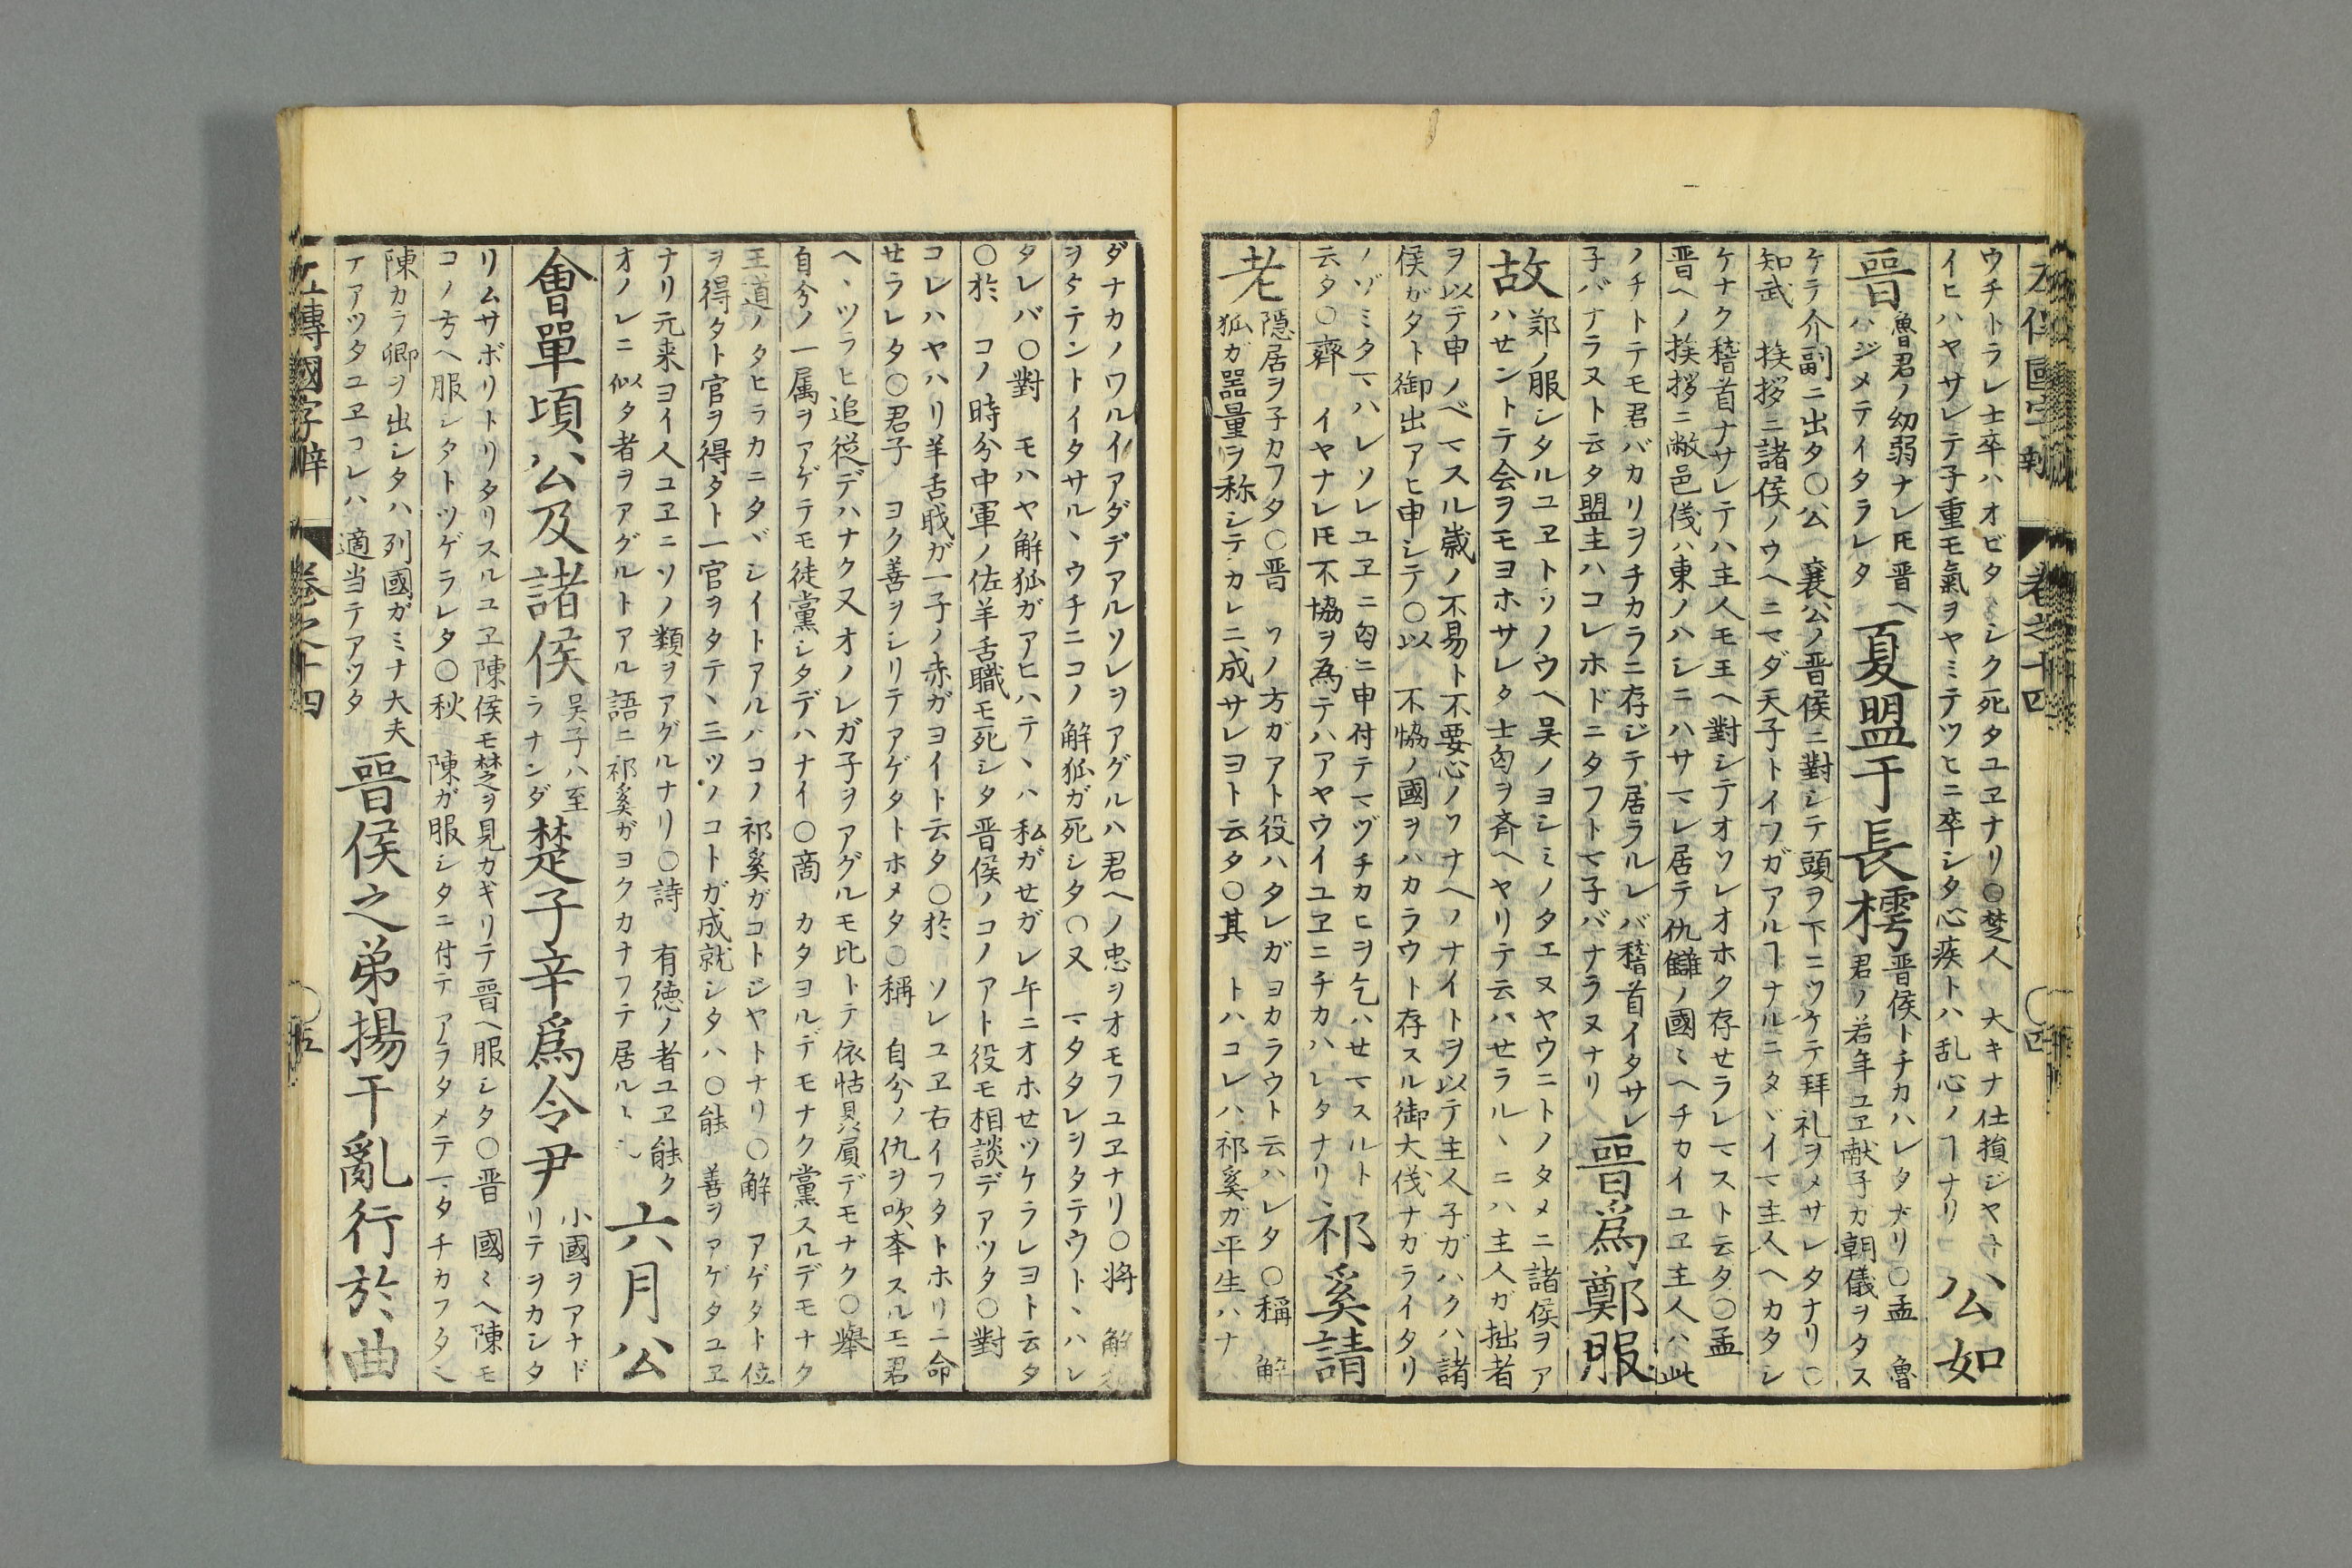 ウチトラレ士卒ハオビタシク死タユヱナリ〇楚人 大キナ仕損ジヤト
イヒハヤサレテ子重モ氣ヲヤミテツヒニ卒シタ心疾トハ乱心ノヿナリ
公如
晋
魯君ノ幼弱ナレ𪜈晋ヘ
ハジメテイタラレタ
夏盟于長樗
晋侯トチカハレタナリ〇孟 魯
君ノ若年ユヱ献子カ朝儀ヲタス
ケラ介副ニ出タ〇公 襄公ノ晋侯ニ對シテ頭ヲ下ニツケテ拜礼ヲメサレタナリ〇
知武 挨拶ニ諸侯ノウヘニマダ天子トイフガアルヿナルニタヾイマ主人ヘカタシ
ケナク稽首ナサレテハ主人モ王ヘ對シテオソレオホク存せラレマスト云タ〇孟
晋ヘノ挨拶ニ敝邑侭ハ東ノハシニハサマレ居テ仇讎ノ國ミヘチカイユヱ主人ハ此
ノチトテモ君バカリヲチカラニ存ジテ居ラルレバ稽首イタサレ
子バナラヌト云タ盟主ハコレホドニタフトマ子バナラヌナリ
晋為鄭服
故
郑ノ服シタルユヱトソノウヘ吴ノヨシミノタエヌヤウニトノタメニ諸侯ヲア
ハせントテ会ヲモヨホサレタ士匄ヲ斉ヘヤリテ云ハせラルヽニハ主人ガ拙者
ヲ以テ申ノベマスル歳ノ不易ト不要心ノソナヘノナイトヲ以テ主人子ガハクハ諸
侯ガタト御出アヒ申シテ〇以 不恊ノ國ヲハカラウト存スル御大侭ナカライタリ
ノゾミタマハレソレユヱニ匄ニ申付テマヅチカヒヲ乞ハせマスルト
云タ〇齊 イヤナレ𪜈不協ヲ為テハアヤウイユヱニチカハレタナリ
祁奚請
老
隠居ヲ子カフタ〇晋 ソノ方ガアト役ハタレガヨカラウト云ハレタ〇稱 解
狐ガ器量ヲ称シテカレニ成サレヨト云タ〇其 トハコレハ祁奚ガ平生ハナ
ダナカノワルイアダデアルソレヲアグルハ君ヘノ忠ヲオモフユヱナリ〇将 解
ヲタテントイタサルヽウチニコノ解狐ガ死シタ〇又 マタタレヲタテウトヽハレ
タレバ〇對 モハヤ解狐ガアヒハテヽハ私ガせガレ午ニオホせツケラレヨト云タ
〇於 コノ時分中軍ノ佐羊舌職モ死シタ晋侯ノコノアト役モ相談デアツタ〇對
コレハヤハリ羊舌職ガ一子ノ赤ガヨイト云タ〇於 ソレユヱ右イフタトホリニ命
せラレタ〇君子 ヨク善ヲシリテアゲタトホメタ〇稱 自分ノ仇ヲ吹挙スルモ君
ヘヽツラヒ追従デハナク又オノレガ子ヲアグルモ比トテ依怙贔屓デモナク〇舉
自分ノ一属ヲアゲテモ徒黨シタデハナイ〇商 カタヨルデモナク黨スルデモナク
王道ノタヒラカニタヾシイトアルハコノ祁奚ガコトジヤトナリ〇解 アゲタト位
ヲ得タト官ヲ得タト一官ヲタテヽ三ツノコトガ成就シタハ〇能 善ヲアゲタユヱ
ナリ元来ヨイ人ユヱニソノ類ヲアグルナリ〇詩 有徳ノ者ユヱ能ク
オノレニ似タ者ヲアグルトアル語ニ祁奚ガヨクカナフテ居ル
六月公
會單頃公及諸侯
吴子ハ至
ラナンダ
楚子辛爲令尹
小國ヲアナド
リテヲカシタ
リムサボリトリタリスルユヱ陳侯モ楚ヲ見カギリテ晋ヘ服シタ〇晋 國ミヘ陳モ
コノ方ヘ服シタトツゲラレタ〇秋 陳ガ服シタニ付テアラタメテマタチカフタ
陳カラ卿ヲ出シタハ列國ガミナ大夫
アアツタユヱコレハ適当テアツタ
晋侯之弟揚干亂行於曲
左傳國字辯 巻之十四 〇五